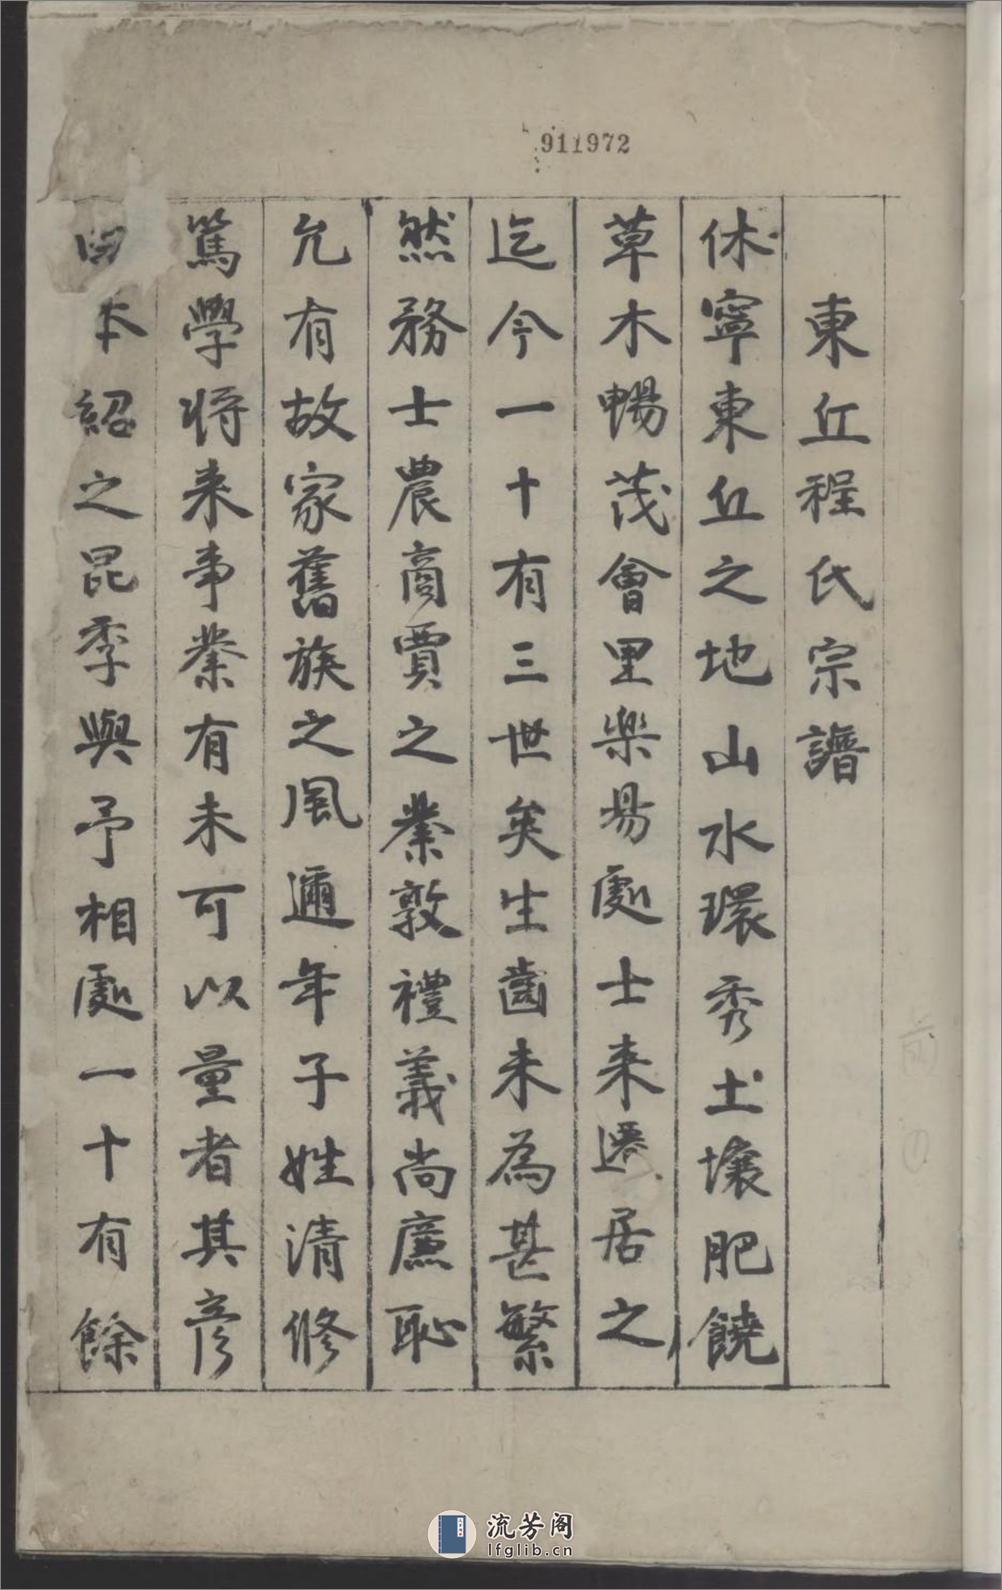 911972
東丘程氏宗譜
休寧東丘之地山水環秀土壤肥饒
草木暢茂會里樂易處士来遷居之
迄今一十有三世矣生齒未為甚繁
然務士農商賈之業敦禮義尚廉恥
允有故家舊族之風邇年子姓清修
篤學将来事業有未可以量者其彦
本紹之昆季與予相處一十有餘
流芳阁
lfglib.cn